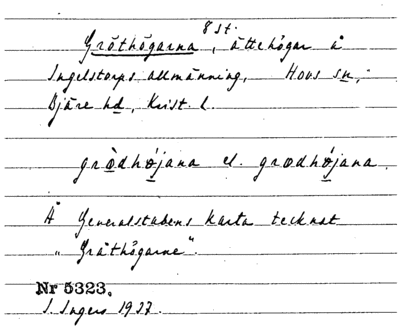 8 st.
Gröthögarna, ättehögar å
Ingelstorps allmänning, Hovs sn,
Bjäre hd, Krist. l.
grödhøjana el. grœdhøjana.
Å Generalstabens karta tecknat
"Gråthögarne".
Nr 5323.
I. Ingers 1937.